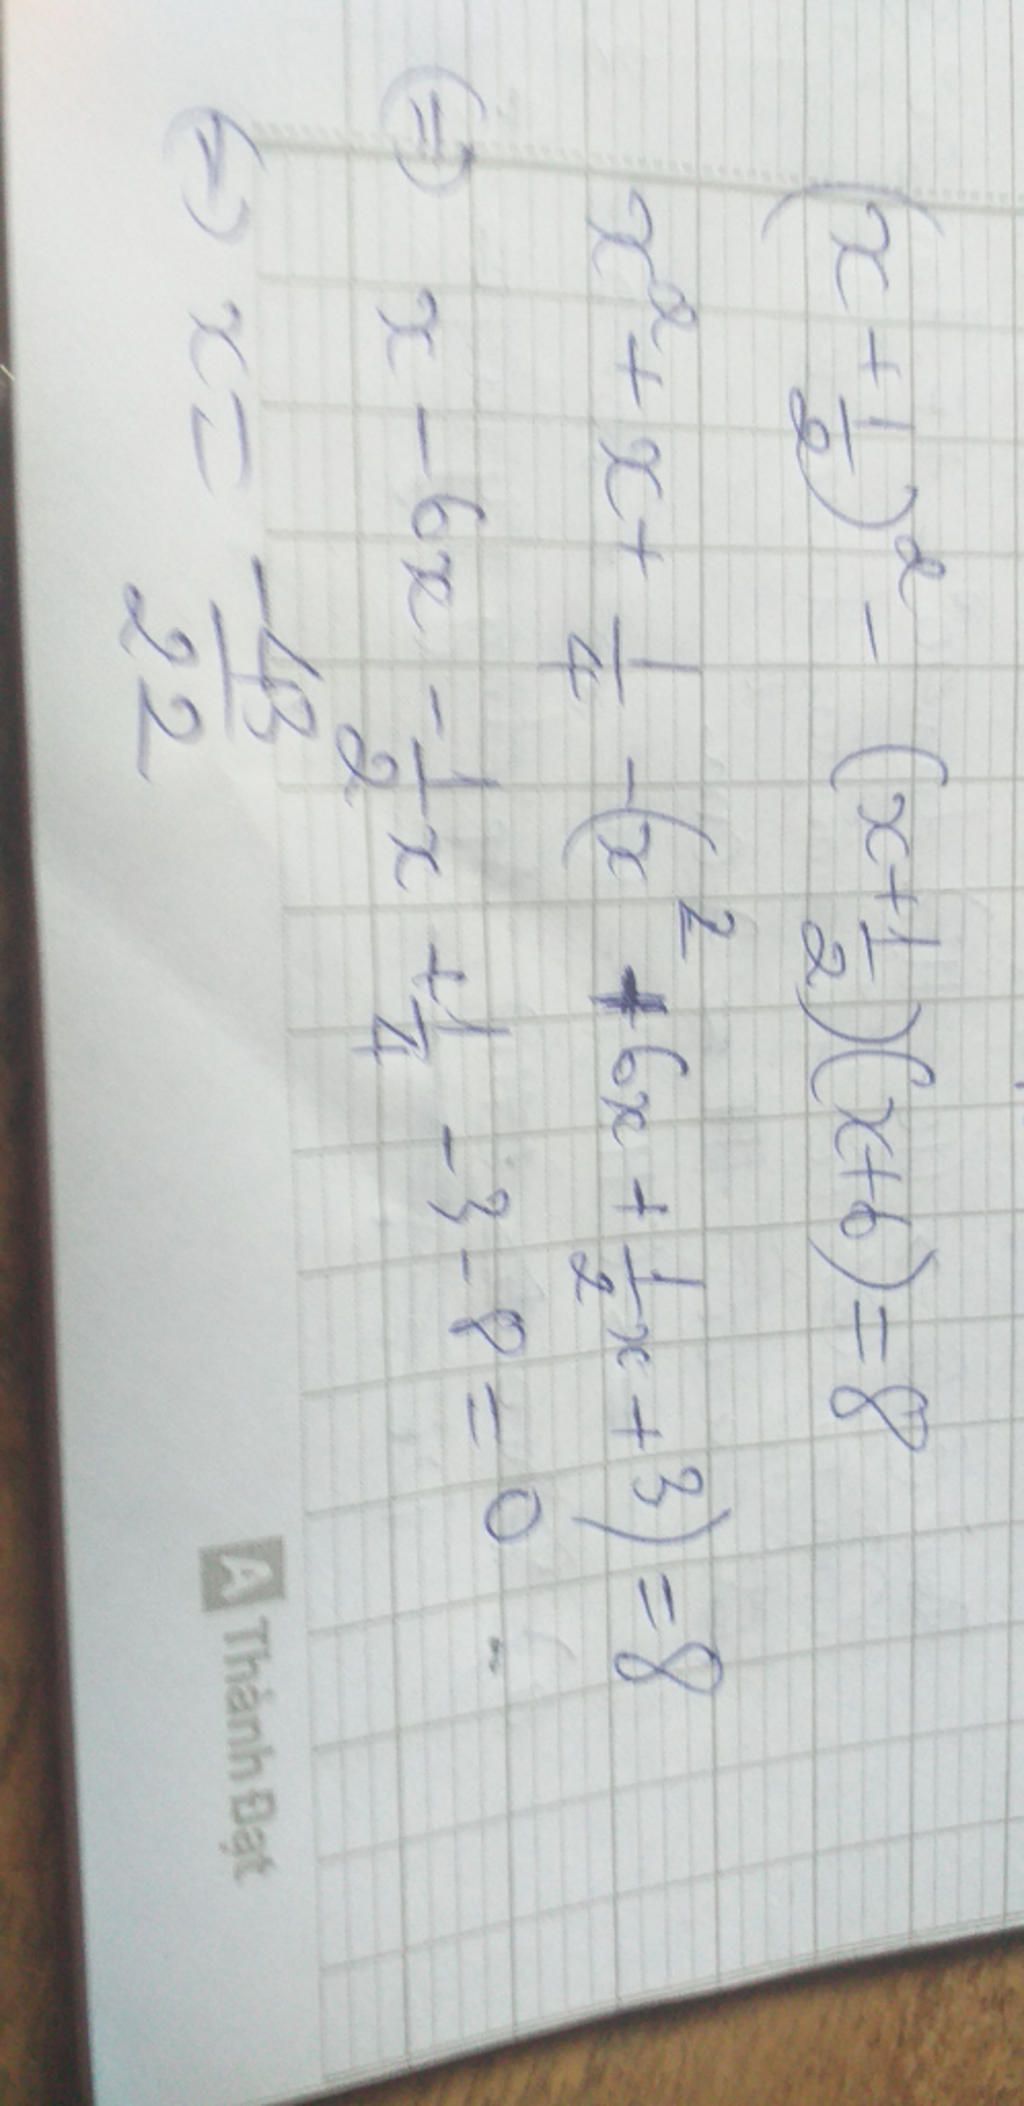 (x + 1/2)² - (x + 1/2)(x + 6) = 8
x² + x + 1/4 - (x² + 6x + 1/2x + 3) = 8
(=) x - 6x - 1/2x + 1/4 - 3 - 8 = 0
(=) x = -43/22
A Thành Đạt